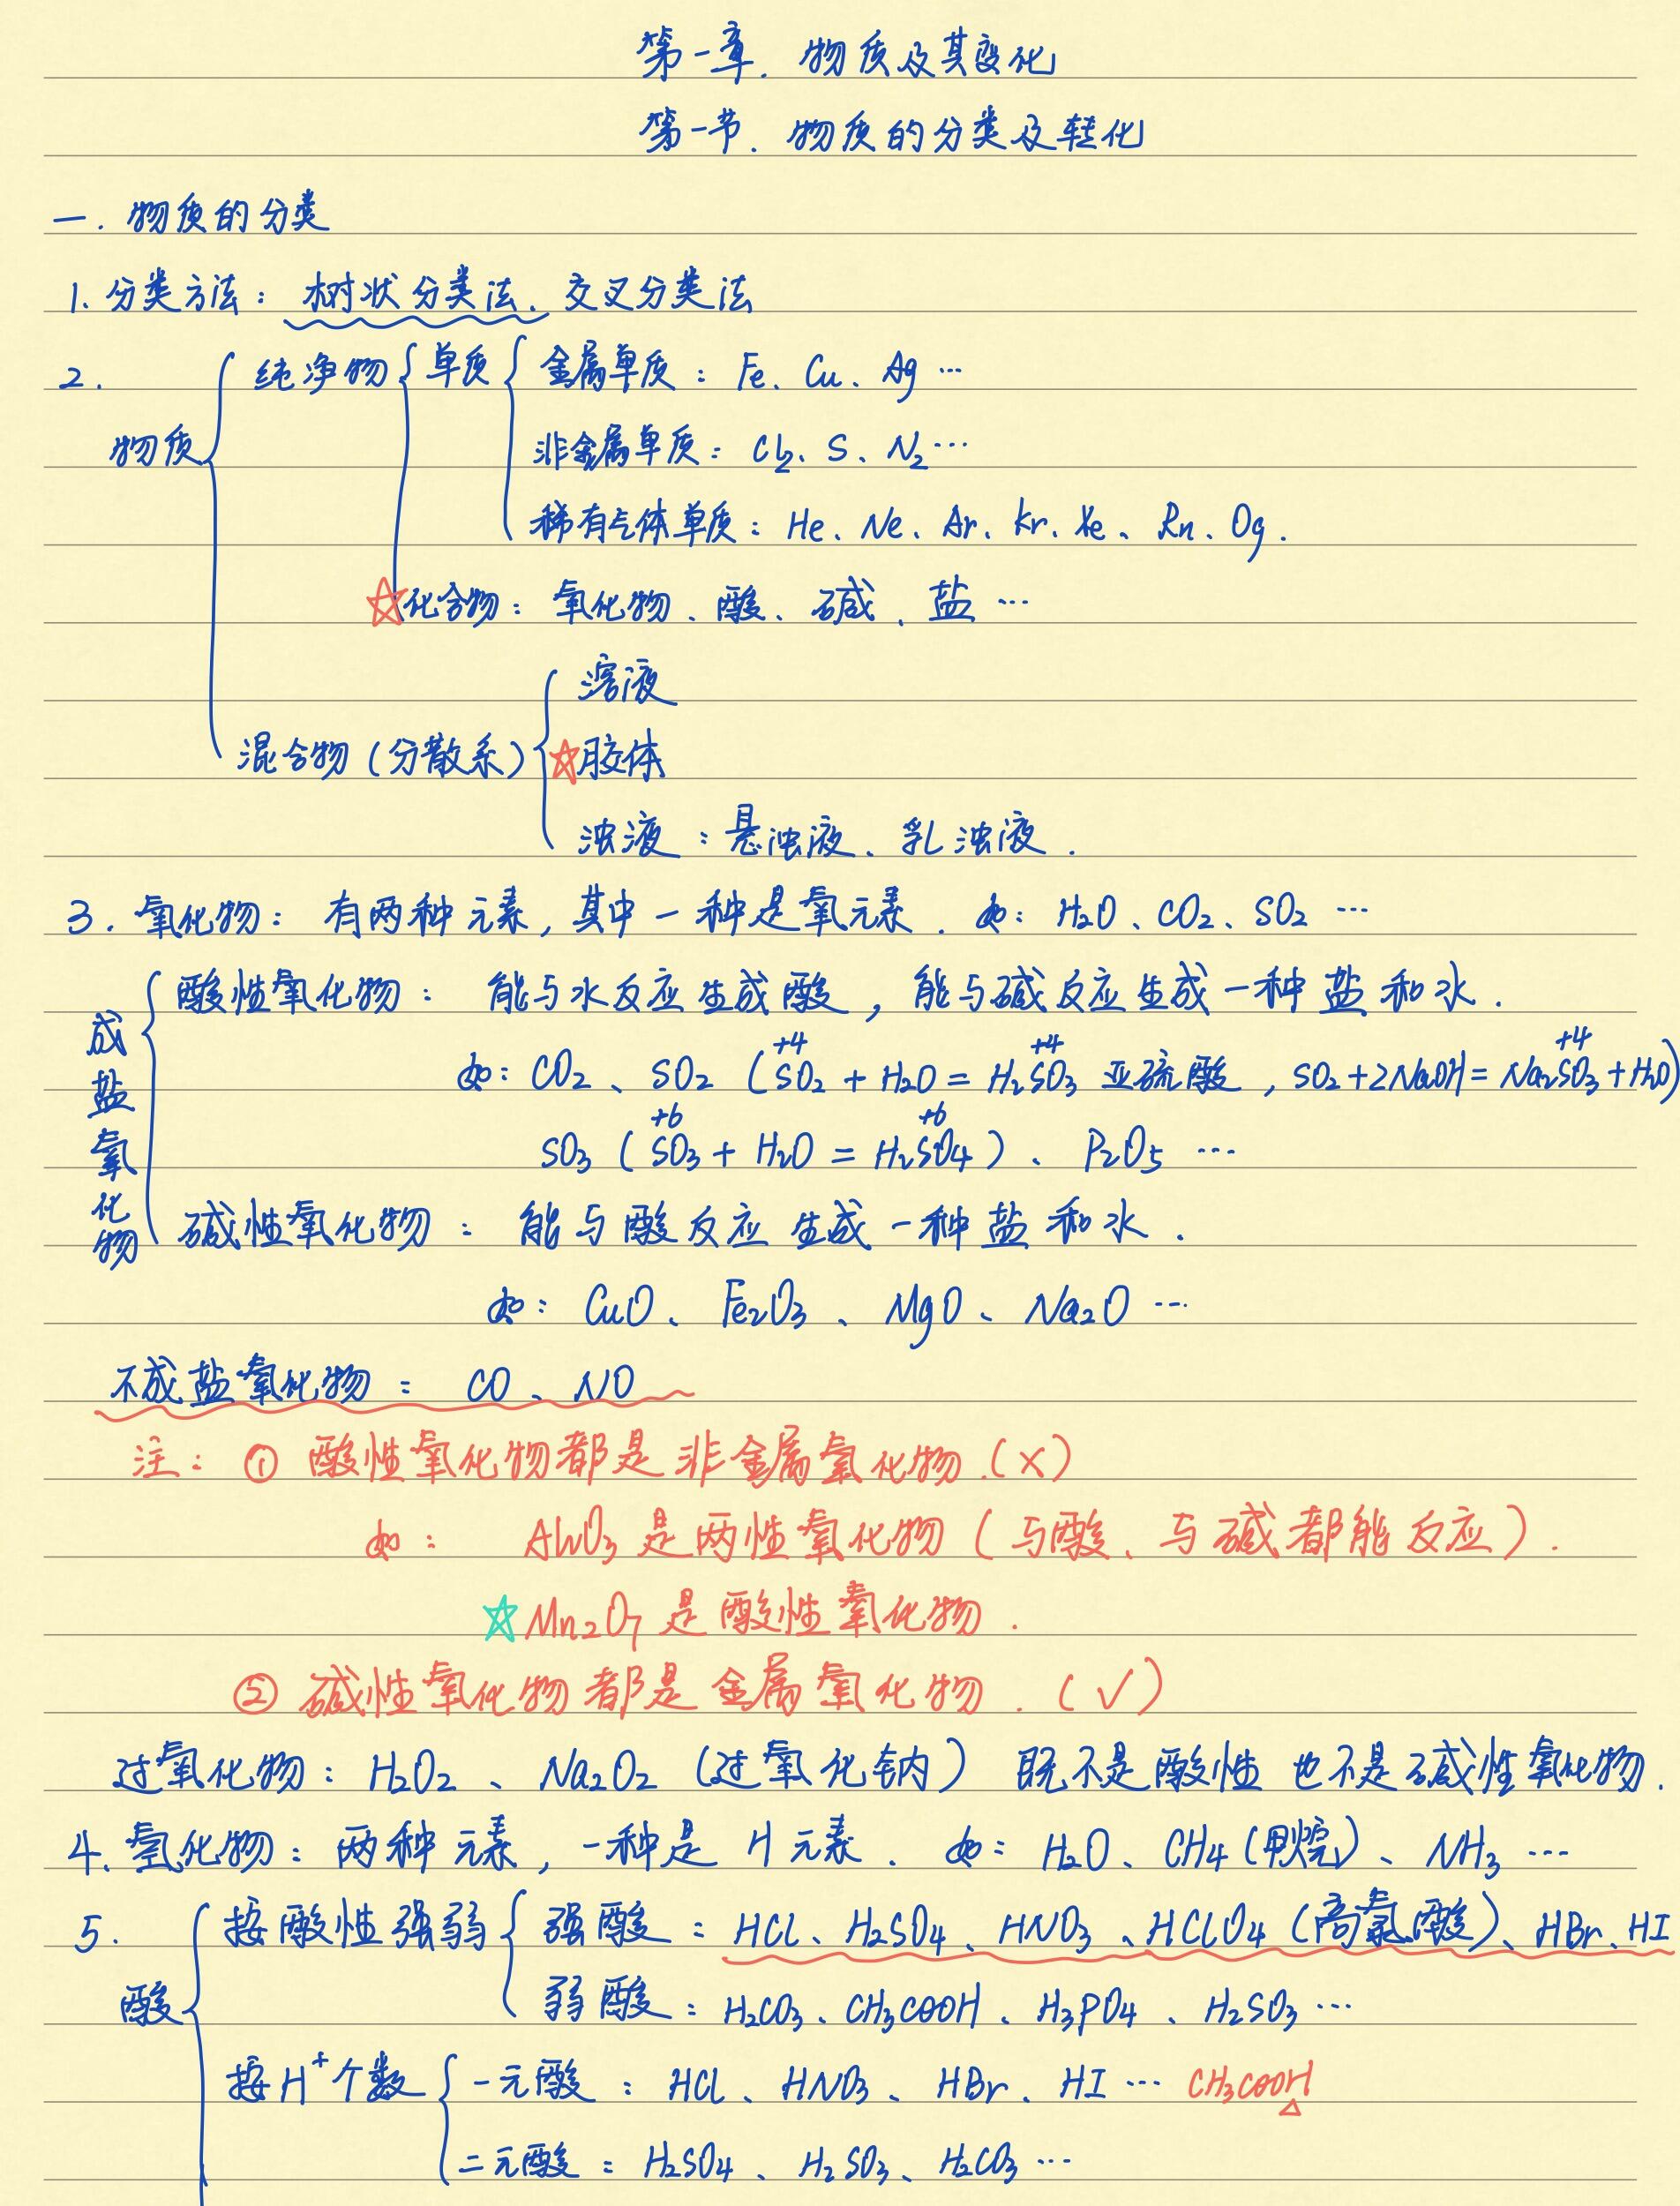 第一章. 物质及其变化
第一节. 物质的分类及转化
一. 物质的分类
1. 分类方法: 树状分类法、交叉分类法
2. 纯净物 单质 金属单质: Fe、Cu、Ag …
物质 非金属单质: Cl₂、S、N₂ …
稀有气体单质: He、Ne、Ar、Kr、Xe、Rn、Og.
☆化合物: 氧化物、酸、碱、盐 …
溶液
混合物(分散系) ☆胶体
浊液: 悬浊液、乳浊液.
3. 氧化物: 有两种元素, 其中一种是氧元素. 如: H₂O、CO₂、SO₂ …
成盐氧化物 酸性氧化物: 能与水反应生成酸, 能与碱反应生成一种盐和水.
+4 +4 +4
如: CO₂、SO₂ (SO₂ + H₂O = H₂SO₃ 亚硫酸, SO₂ + 2NaOH = Na₂SO₃ + H₂O)
+6 +6
SO₃ (SO₃ + H₂O = H₂SO₄)、P₂O₅ …
碱性氧化物: 能与酸反应生成一种盐和水.
如: CuO、Fe₂O₃、MgO、Na₂O …
不成盐氧化物: CO、NO
注: ① 酸性氧化物都是非金属氧化物.(×)
如: Al₂O₃ 是两性氧化物 (与酸、与碱都能反应).
☆Mn₂O₇ 是酸性氧化物.
② 碱性氧化物都是金属氧化物.(√)
过氧化物: H₂O₂、Na₂O₂ (过氧化钠) 既不是酸性也不是碱性氧化物.
4. 氢化物: 两种元素, 一种是H元素. 如: H₂O、CH₄(甲烷)、NH₃ …
5. 按酸性强弱 强酸: HCl、H₂SO₄、HNO₃、HClO₄(高氯酸)、HBr、HI
酸 弱酸: H₂CO₃、CH₃COOH、H₃PO₄、H₂SO₃ …
按H⁺个数 一元酸: HCl、HNO₃、HBr、HI … CH₃COOH
△
二元酸: H₂SO₄、H₂SO₃、H₂CO₃ …